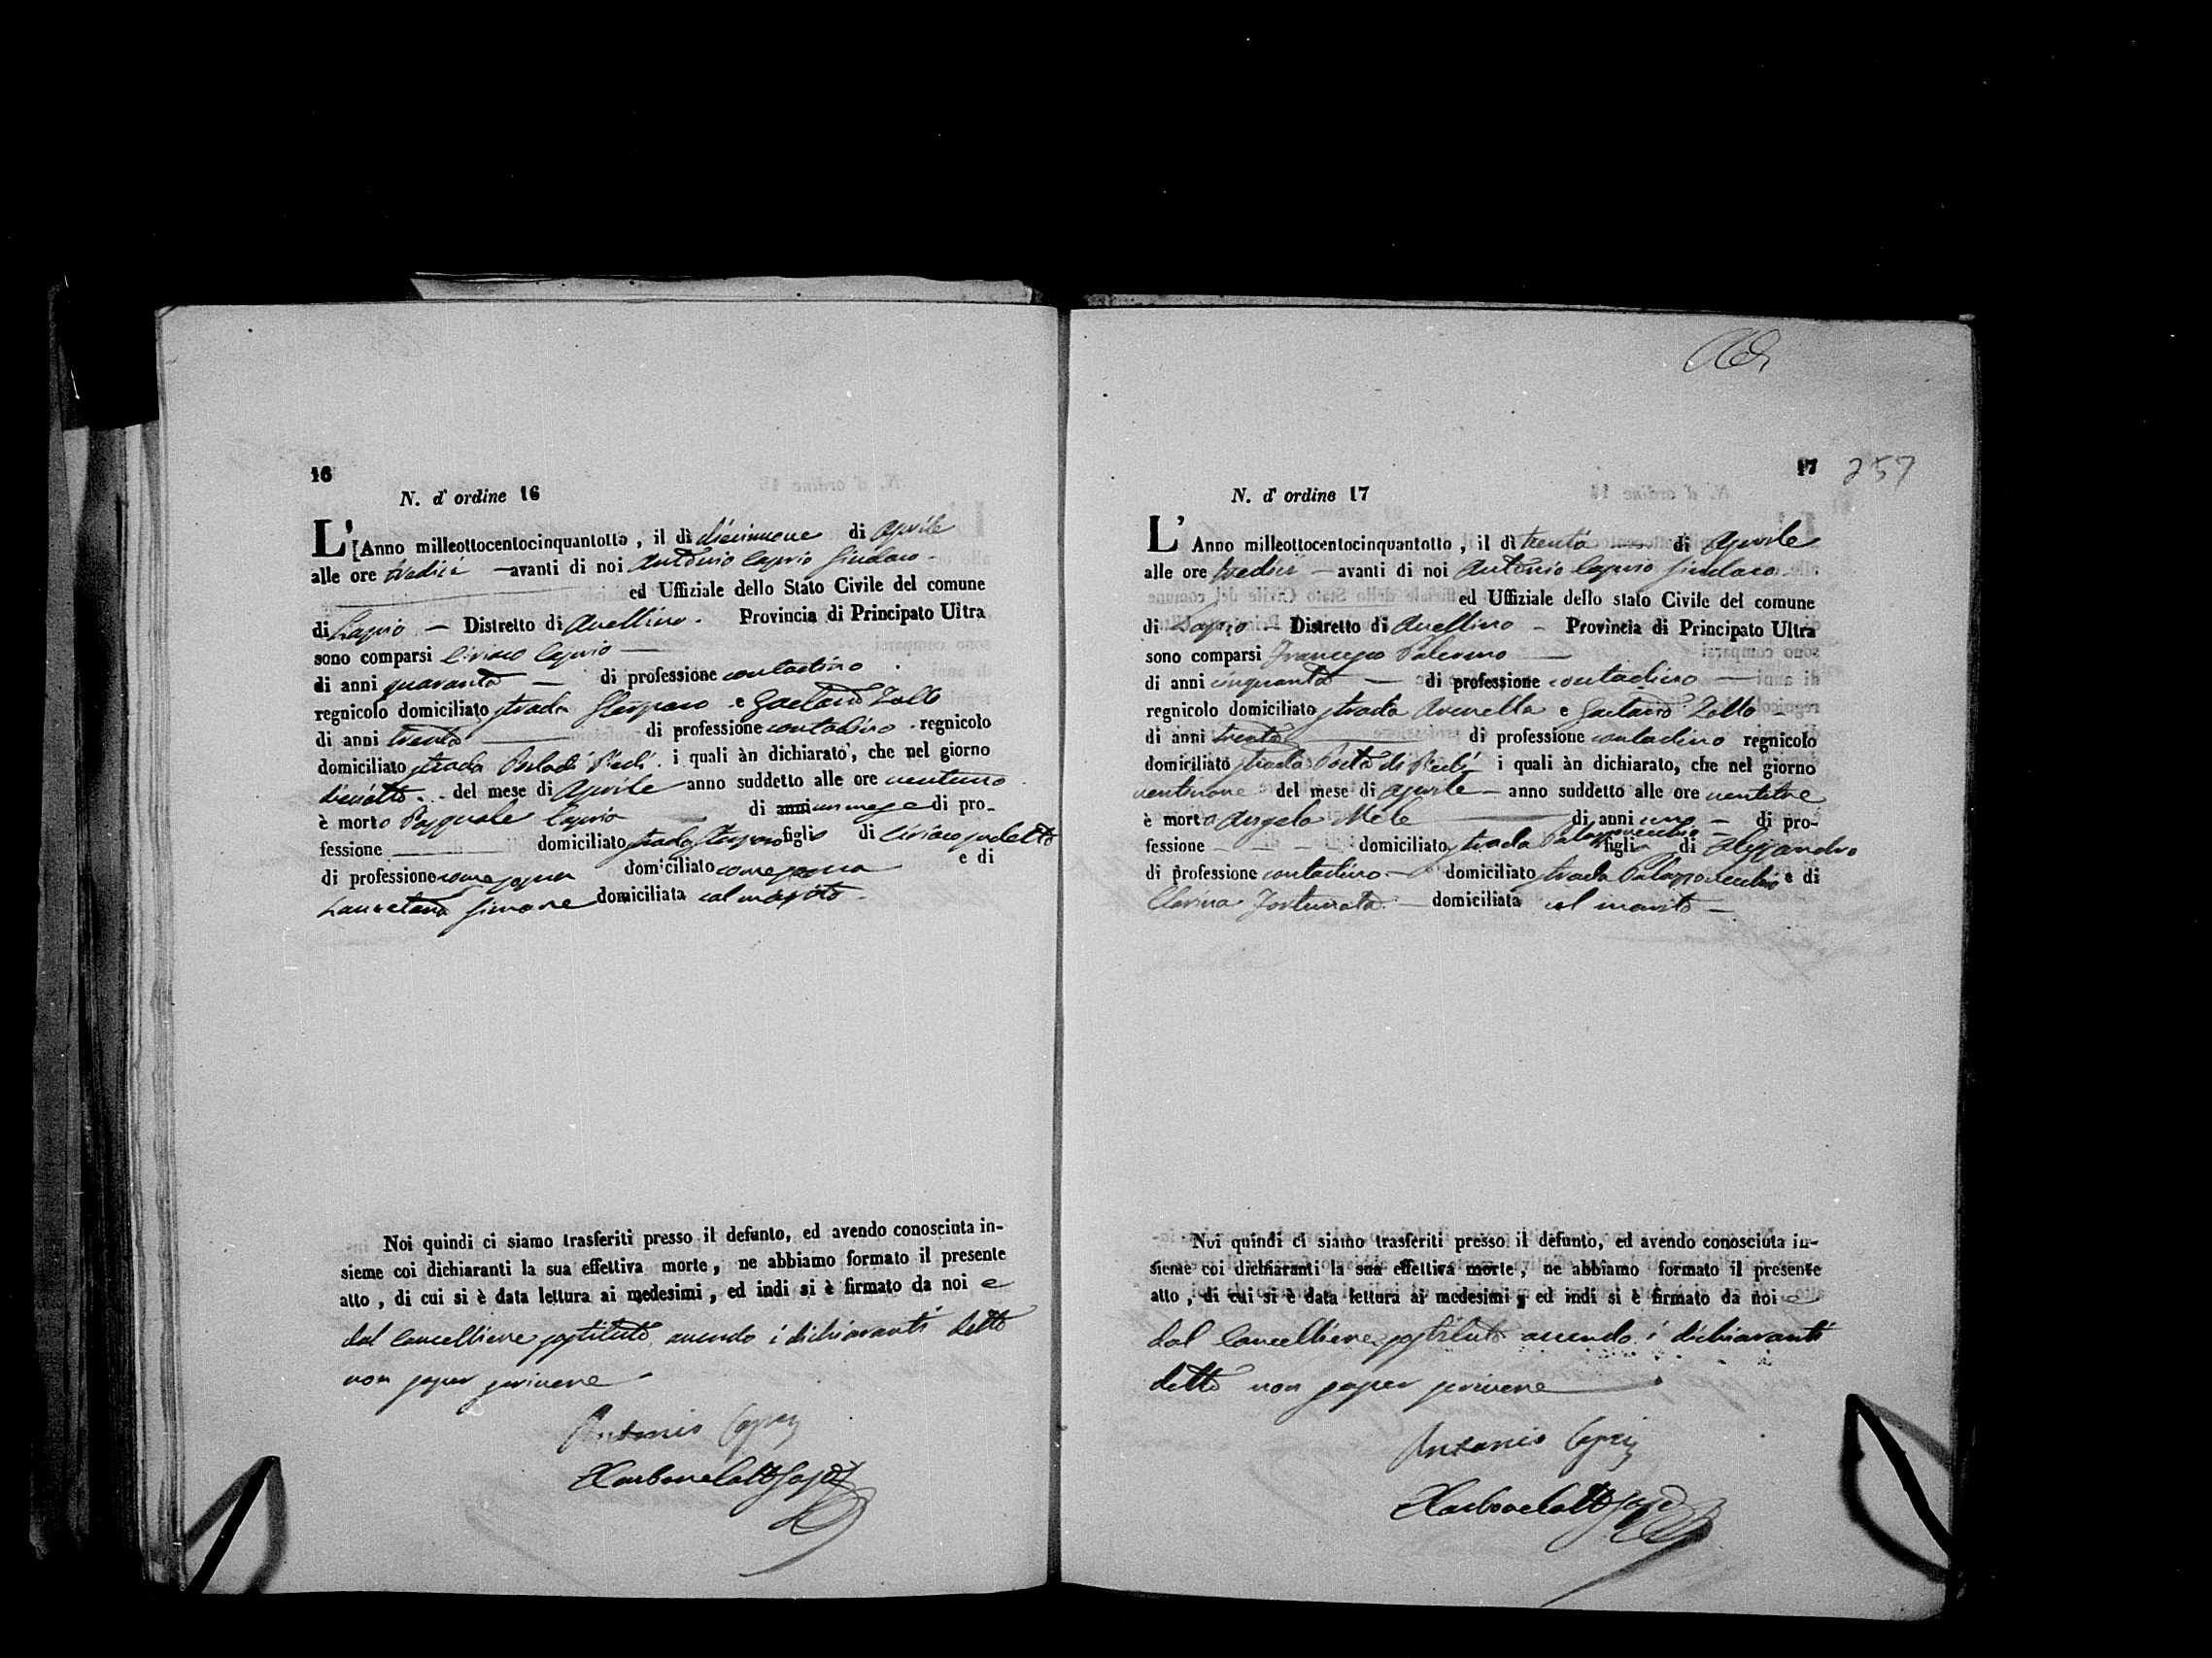 16
N. d' ordine 16
L'Anno milleottocentocinquantotto, il dì diecinnove di Aprile
alle ore tredici — avanti di noi Antonio Caprio Sindaco -
ed Uffiziale dello Stato Civile del comune
di Lapio — Distretto di Avellino. Provincia di Principato Ultra
sono comparsi Ciriaco Caprio —
di anni quaranta — di professione contadino .
regnicolo domiciliato strada e Gaetano Zollo
di anni trenta — di professione contadino . regnicolo
domiciliato strada Porta di Piedi . i quali àn dichiarato, che nel giorno
diciotto . . del mese di Aprile anno suddetto alle ore ventuno
è morto Pasquale Caprio — di anni un mese e di pro-
fessione — domiciliato strada figlio di Ciriaco sudetto
di professione come sopra domiciliato come sopra e di
Lauretana Simone domiciliata col marito -
Noi quindi ci siamo trasferiti presso il defunto, ed avendo conosciuta in-
sieme coi dichiaranti la sua effettiva morte, ne abbiamo formato il presente
atto, di cui si è data lettura ai medesimi, ed indi si è firmato da noi e
dal Cancelliere sostituto avendo i dichiaranti detto
non saper scrivere -
Antonio Caprio
17 257
N. d' ordine 17
L'Anno milleottocentocinquantotto, il dì trenta — di Aprile
alle ore tredici — avanti di noi Antonio Caprio Sindaco -
ed Uffiziale dello stato Civile del comune
di Lapio — Distretto di Avellino — Provincia di Principato Ultra
sono comparsi Francesco Palermo —
di anni cinquanta — di professione contadino —
regnicolo domiciliato strada Arenella e Gaetano Zollo -
di anni trenta — di professione contadino regnicolo
domiciliato strada Porta di Piedi i quali àn dichiarato, che nel giorno
ventinove del mese di Aprile — anno suddetto alle ore ventitre
è morta Angela Mele — di anni uno — di pro-
fessione - - - domiciliato strada Palazzovecchio figlia di Alessandro
di professione contadino — domiciliato strada Palazzovecchio e di
Clorina Fortunata — domiciliata col marito —
Noi quindi ci siamo trasferiti presso il defunto, ed avendo conosciuta in-
sieme coi dichiaranti la sua effettiva morte, ne abbiamo formato il presente
atto, di cui si è data lettura ai medesimi, ed indi si è firmato da noi e
dal Cancelliere sostituto avendo i dichiaranti
detto non saper scrivere —
Antonio Caprio